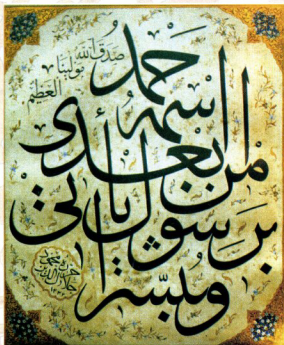 ومبشرا
برسول يأتي
من بعدي
اسمه
احمد
صدق الله
مولينا
العظيم